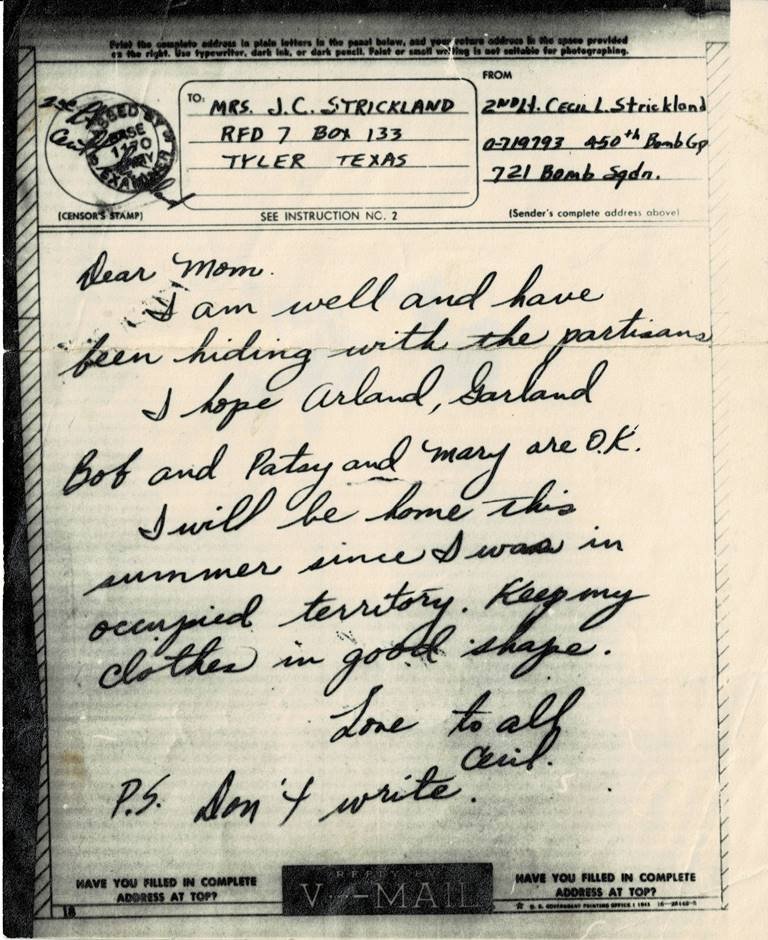 Print the complete address in plain letters in the panel below, and your return address in the space provided
on the right. Use typewriter, dark ink, or dark pencil. Faint or small writing is not suitable for photographing.
FROM
TO:
MRS. J.C. STRICKLAND
RFD 7 BOX 133
TYLER TEXAS
2ND Lt. Cecil L. Strickland
0-719793 450th Bomb Gp
721 Bomb Sqdn.
PASSED BY
BASE
1170
ARMY
EXAMINER
(CENSOR'S STAMP)
SEE INSTRUCTION NO. 2
(Sender's complete address above)
Dear Mom.
I am well and have
been hiding with the partisans
I hope Arland, Garland
Bob and Patsy and Mary are O.K.
I will be home this
summer since I was in
occupied territory. Keep my
clothes in good shape.
Love to all
Cecil.
P.S. Don't write.
HAVE YOU FILLED IN COMPLETE
ADDRESS AT TOP?
REPLY BY
V···—MAIL
HAVE YOU FILLED IN COMPLETE
ADDRESS AT TOP?
U. S. GOVERNMENT PRINTING OFFICE : 1943